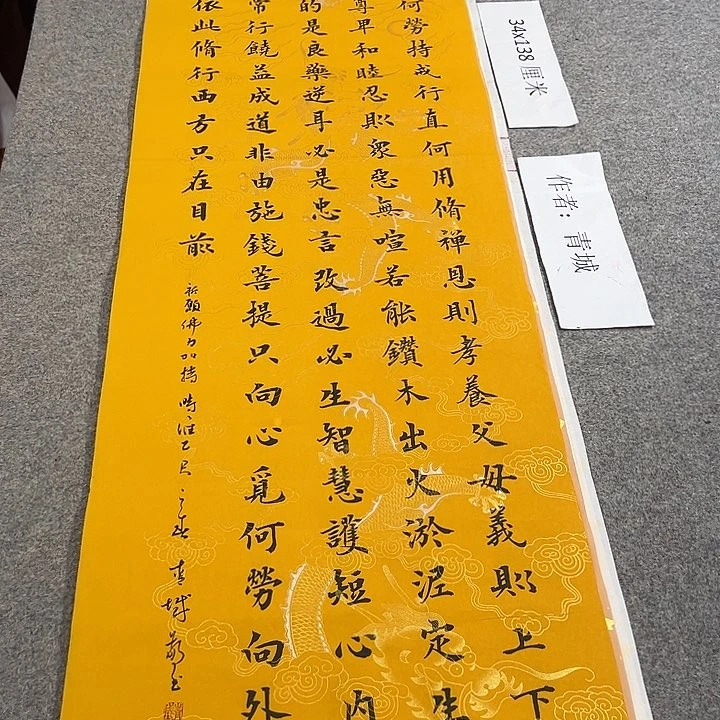 何勞持戒行直何用脩禪恩則孝養父母義則上下
尊卑和睦忍則衆惡無喧若能鑽木出火淤泥定生
的是良藥逆耳必是忠言改過必生智慧護短心內
常行饒益成道非由施錢菩提只向心覓何勞向外
依此脩行西方只在目前
祈願佛力加持時維乙巳之春青城敬书
34x138厘米
作者：青城